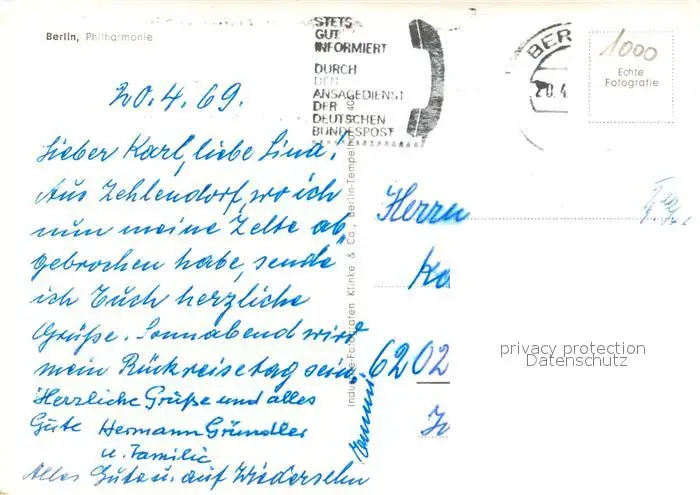 Berlin, Philharmonie
STETS
GUT
INFORMIERT
DURCH
DEN
ANSAGEDIENST
DER
DEUTSCHEN
BUNDESPOST
BER
20.4
1000
Echte
Fotografie
20.4.69.
Lieber Karl, liebe Lina!
Aus Zehlendorf, wo ich
nun meine Zelte ab
gebrochen habe, sende
ich Euch herzliche
Grüße. Sonnabend wird
mein Rückreisetag sein.
Herzliche Grüße und alles
Gute Hermann Gründler
u. Familie
Alles Gute u. auf Wiedersehn
Industrie-Fotografen Klinke & Co., Berlin-Tempelhof
Herrn
Ka
6202
privacy protection
Datenschutz